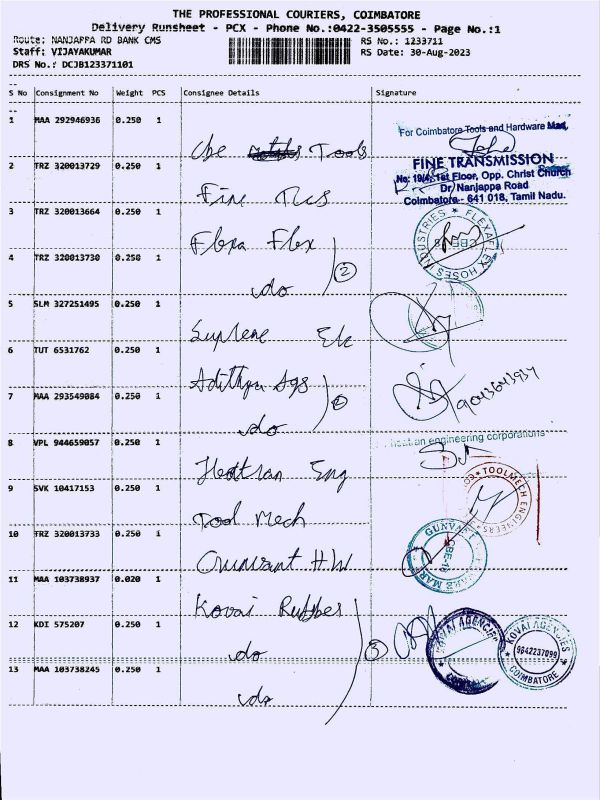 THE PROFESSIONAL COURIERS, COIMBATORE
Delivery Runsheet - PCX - Phone No.:0422-3505555 - Page No.:1
Route: NANJAPPA RD BANK CMS
RS No.: 1233711
Staff: VIJAYAKUMAR
RS Date: 30-Aug-2023
DRS No.: DCJB123371101
S No Consignment No Weight PCS Consignee Details Signature
1 MAA 292946936 0.250 1
For Coimbatore Tools and Hardware Mart,
Cbe Tools
2 TRZ 320013729 0.250 1
FINE TRANSMISSION
Partner
No: 19/4, 1st Floor, Opp. Christ Church
Dr. Nanjappa Road
Coimbatore - 641 018, Tamil Nadu.
Fine
3 TRZ 320013664 0.250 1
Flexa Flex
FLEXAFLEX HOSES INDUSTRIES
CBE-18
4 TRZ 320013730 0.250 1
do 2
5 SLM 327251495 0.250 1
Suplene
6 TUT 6531762 0.250 1
Adithya Ags
7 MAA 293549084 0.250 1
do 2
9043643937
8 VPL 944659057 0.250 1
engineering corporations
Heatran Eng
9 SVK 10417153 0.250 1
TOOLMECH ENGINEERS
Tool Mech
10 TRZ 320013733 0.250 1
CBE-18
Gunvant H.W
11 MAA 103738937 0.020 1
Kovai Rubber
12 KDI 575207 0.250 1
do 3
KOVAI AGENCIES
COIMBATORE
KOVAI AGENCIES
9842237099
COIMBATORE
13 MAA 103738245 0.250 1
do